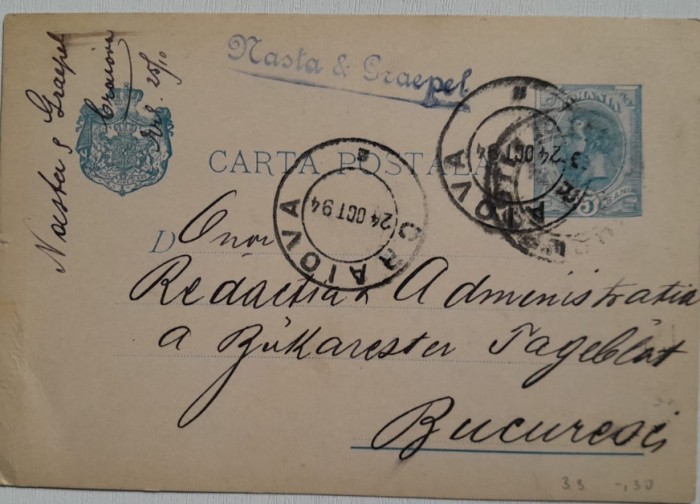 Nasta & Graepel
Craiova
25/10
Nasta & Graepel
CARTA POSTALA
CRAIOVA
24 OCT 94
CRAIOVA
24 OCT 94
5
D
Onor
Redactia & Administratia
a Bukarester Tageblat
Bucuresci